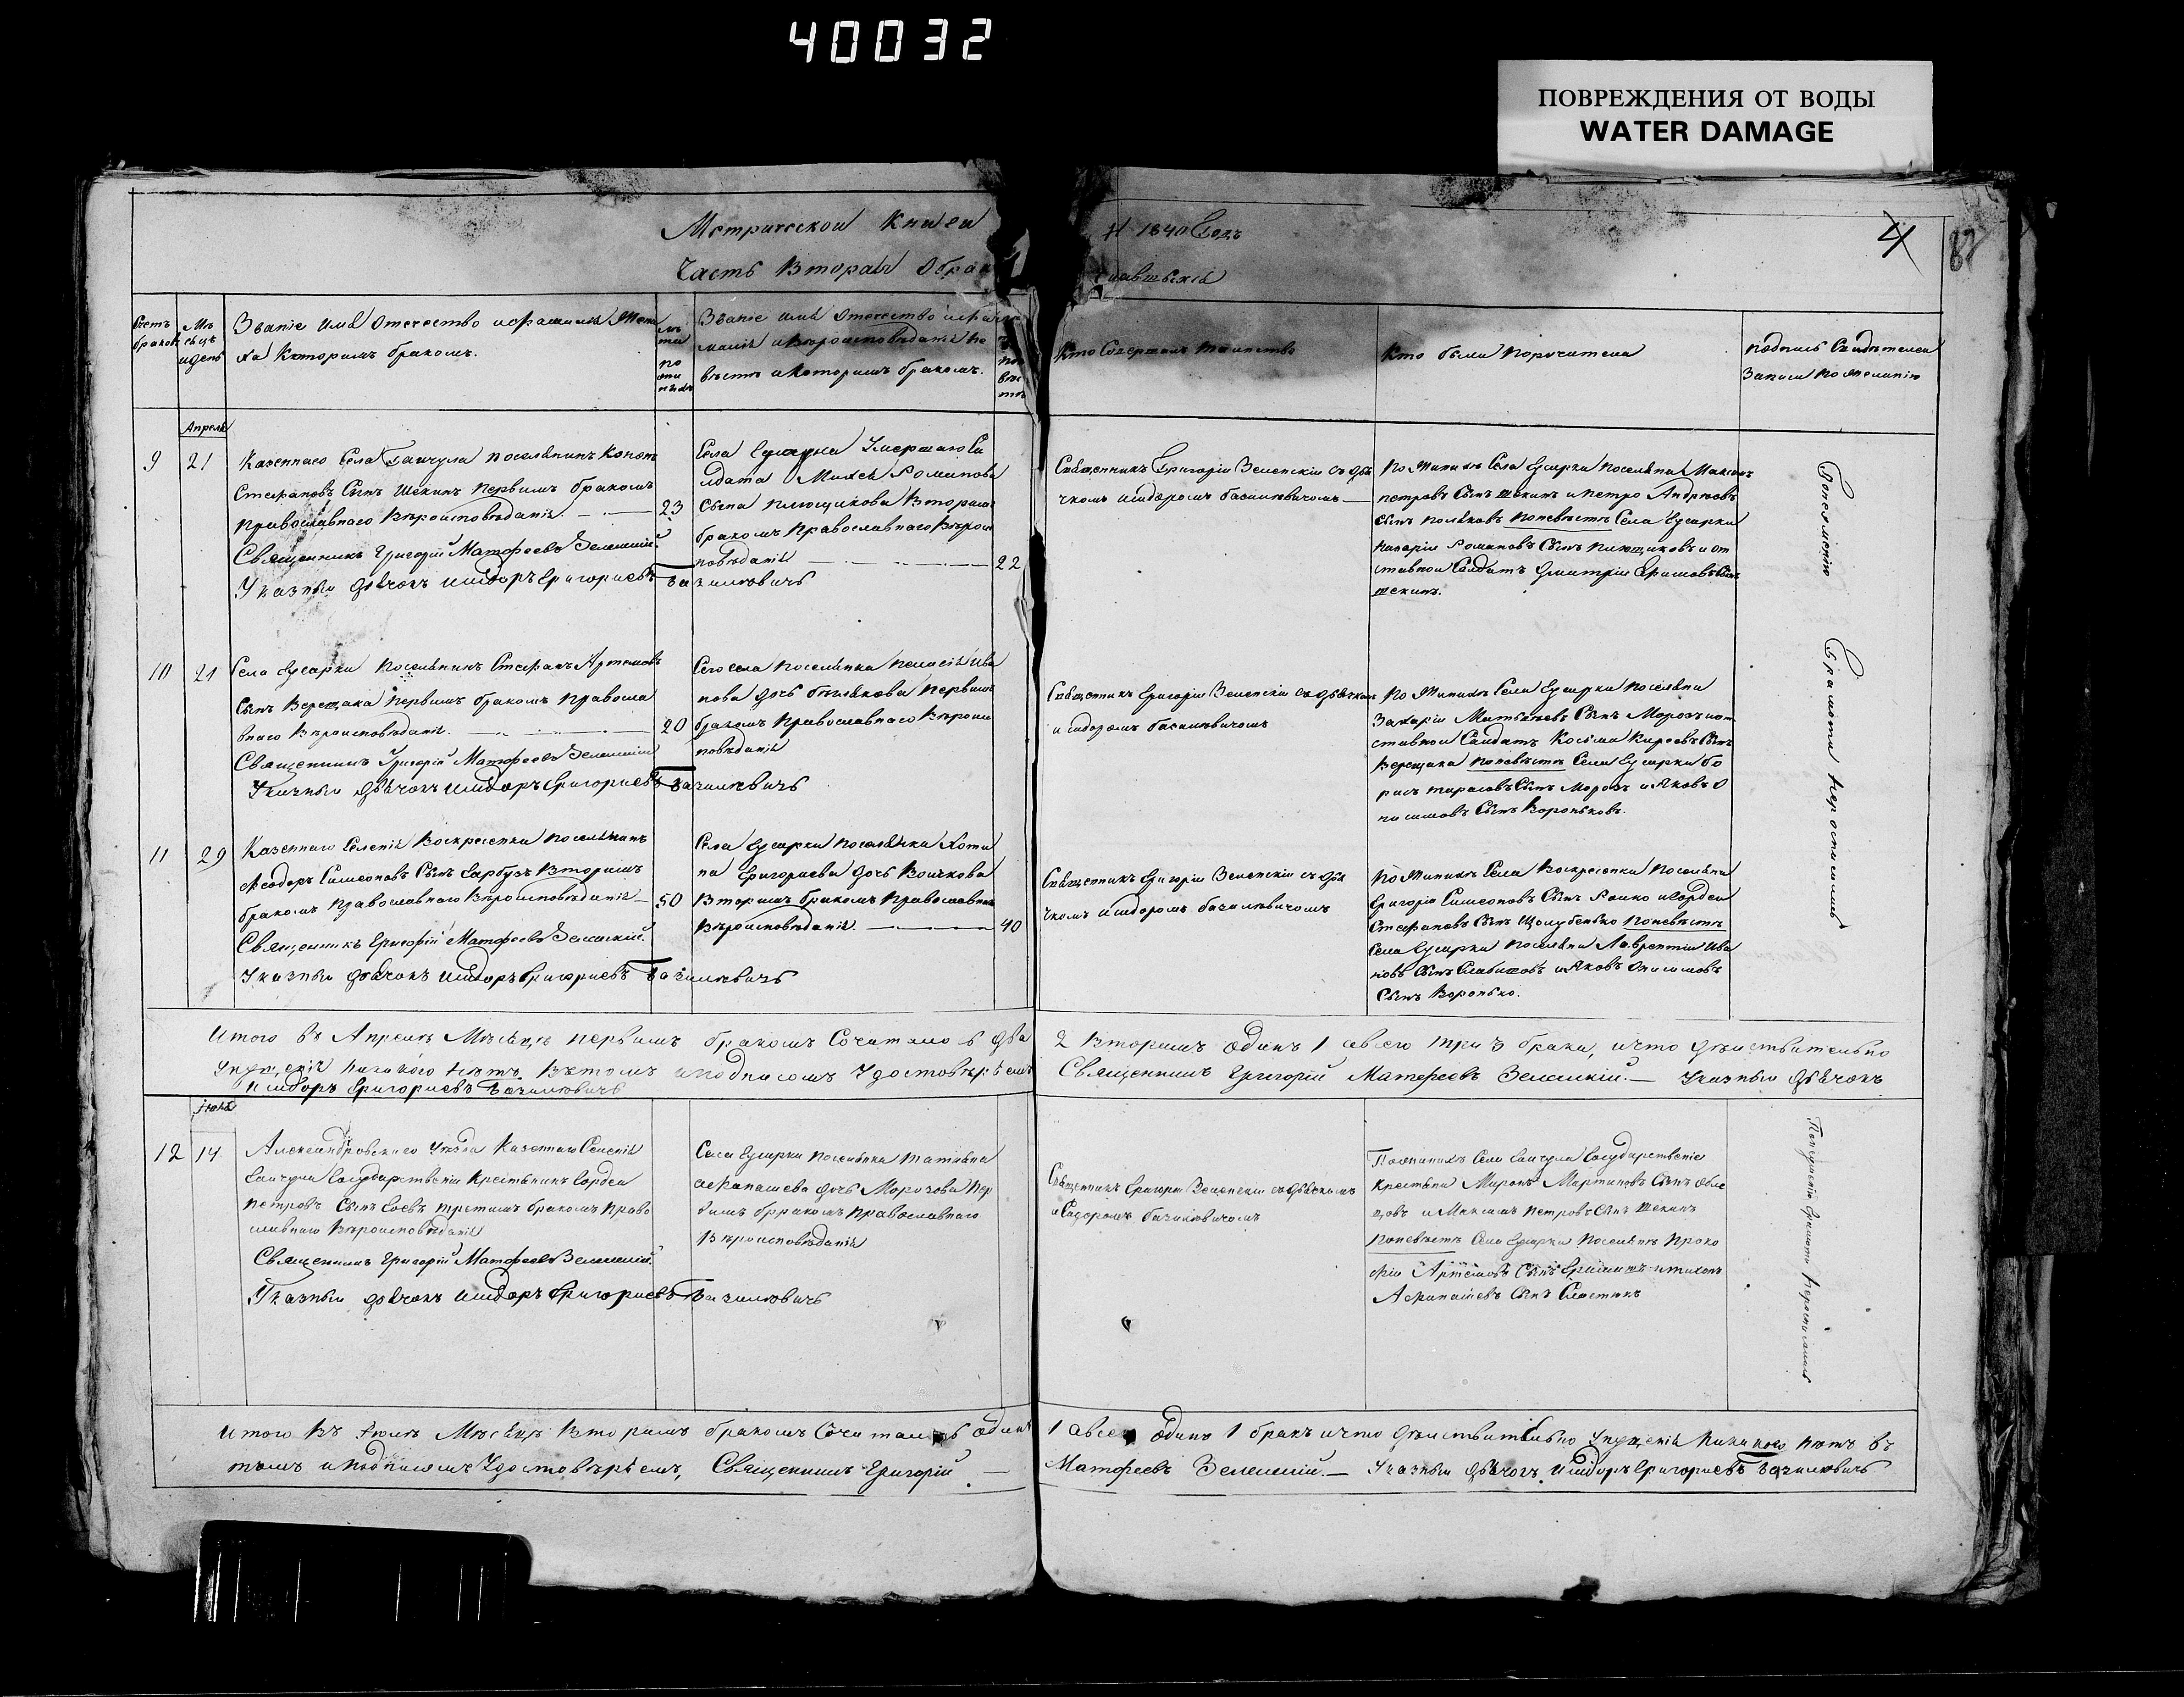 40032
ПОВРЕЖДЕНИЯ ОТ ВОДЫ
WATER DAMAGE
Метрической Книги
Часть Вторая О брак
1840 Годъ
4
Званіе имя Отечество и фамилия Жени
ха Которимъ бракомъ.
Званіе имя Отечество и фа
милія и Вѣроисповѣданіе Не
вѣсты и Которимъ бракомъ.
Кто Совершалъ таинство
Кто были поручители
подпись Свидѣтелей
Записи по желанію
Апреля
9 21
Казенного Села Гайчула поселянинъ
Стефановъ Сынъ Шекинъ первимъ бракомъ
Православнаго Вѣроисповѣданія 23
Священникъ Григорій Матфеевъ Зеленский
Указный дьячокъ Исидоръ Григориевъ Базилювичь
Села Гусарки Умершаго
Романова
Сына Плющикова Вторим
бракомъ Православнаго Вѣроис
повѣданія 22
Священникъ Григорій Зеленскій съ дья
чкомъ Исидоромъ Базилювичомъ
По Женихѣ Села Гусарки поселяни Максимъ
петровъ Сынъ Шекинъ и петро Андрѣевъ
Сынъ Поляковъ по невѣстѣ Села Гусарки
Назарій Романовъ Сынъ Плющиковъ и от
ставной Солдатъ Дмитрій Сынъ
Шекинъ.
10 21
Села Гусарки Поселянинъ Стефанъ Артемовъ
Сынъ Верещака первимъ бракомъ правосла
внаго Вѣроисповѣданія. 20
Священникъ Григорій Матфеевъ Зеленский
Указный дьячокъ Исидоръ Григориевъ Базилювичь
Сего села поселянка Пелагія Ива
нова дочь Белякова первимъ
бракомъ Православнаго Вѣроис
повѣданія
Священникъ Григорій Зеленскій съ дьячкомъ
Исидоромъ Базилювичомъ
По Женихѣ Села Гусарки поселяни
Захарій Матвѣевъ Сынъ Морозъ и от
ставной Солдатъ Косьма Киреевъ Сынъ
Верещака по невѣстѣ Села Гусарки Бо
рисъ Тарасовъ Сынъ Морозъ и Яковъ О
нисимовъ Сынъ Вороньковъ.
11 29
Казенного Селенія Воскресенки поселянинъ
Феодоръ Симеоновъ Сынъ Гарбузъ Вторимъ
бракомъ Православнаго Вѣроисповѣданія 50
Священникъ Григорій Матфеевъ Зеленский.
Указный дьячокъ Исидоръ Григориевъ Базилювичь
Села Гусарки поселянка
Григориева дочь Волчкова
Вторимъ бракомъ Православнаго
Вѣроисповѣданія. 40
Священникъ Григорій Зеленскій съ дья
чкомъ Исидоромъ Базилювичомъ
По Женихѣ Села Воскресенки поселяни
Григорій Симеоновъ Сынъ и Гордей
Стефановъ Сынъ по невѣстѣ
Села Гусарки поселяни Лаврентій Ива
новъ Сынъ и Яковъ Онисимовъ
Сынъ Воронько.
Итого въ Апрелѣ Мѣсяцѣ первимъ бракомъ Сочиталось два 2 Вторимъ Одинъ 1 а всего три 3 брака, и что дѣйствительно
упущенія никакого нѣтъ въ томъ и подписомъ Удостовѣряемъ Священникъ Григорій Матфеевъ Зеленский. — Указный дьячокъ
Исидоръ Григориевъ Базилювичь
12 14
Александровского Уѣзда Казенного Селенія
Гайчула Государственій Крестянинъ Гордей
Петровъ Сынъ третимъ бракомъ Право
славнаго Вѣроисповѣданія
Священникъ Григорій Матфеевъ Зеленский.
Указный дьячокъ Исидоръ Григориевъ Базилювичь
Села Гусарки поселянка Татіяна
Афанасиева дочь Морозова пер
вимъ бракомъ Православнаго
Вѣроисповѣданія
Священникъ Григорій Зеленскій съ дьячкомъ
Исидоромъ Базилювичомъ
По женихѣ Села Гайчула Государственіе
Крестяни Миронъ Мартиновъ Сынъ
и Максимъ Петровъ Сынъ Шекинъ
по невѣстѣ Села Гусарки поселянъ Проко
фій Артемовъ Сынъ и Тихонъ
Афанасиевъ Сынъ
Итого Въ Мѣсяцѣ Вторимъ бракомъ Сочиталось Одинъ 1 а всего Одинъ 1 бракъ и что дѣйствительно Упущенія никакого нѣтъ въ
томъ и подписомъ Удостовѣряемъ, Священникъ Григорій Матфеевъ Зеленский. — Указный дьячокъ Исидоръ Григориевъ Базилювичь